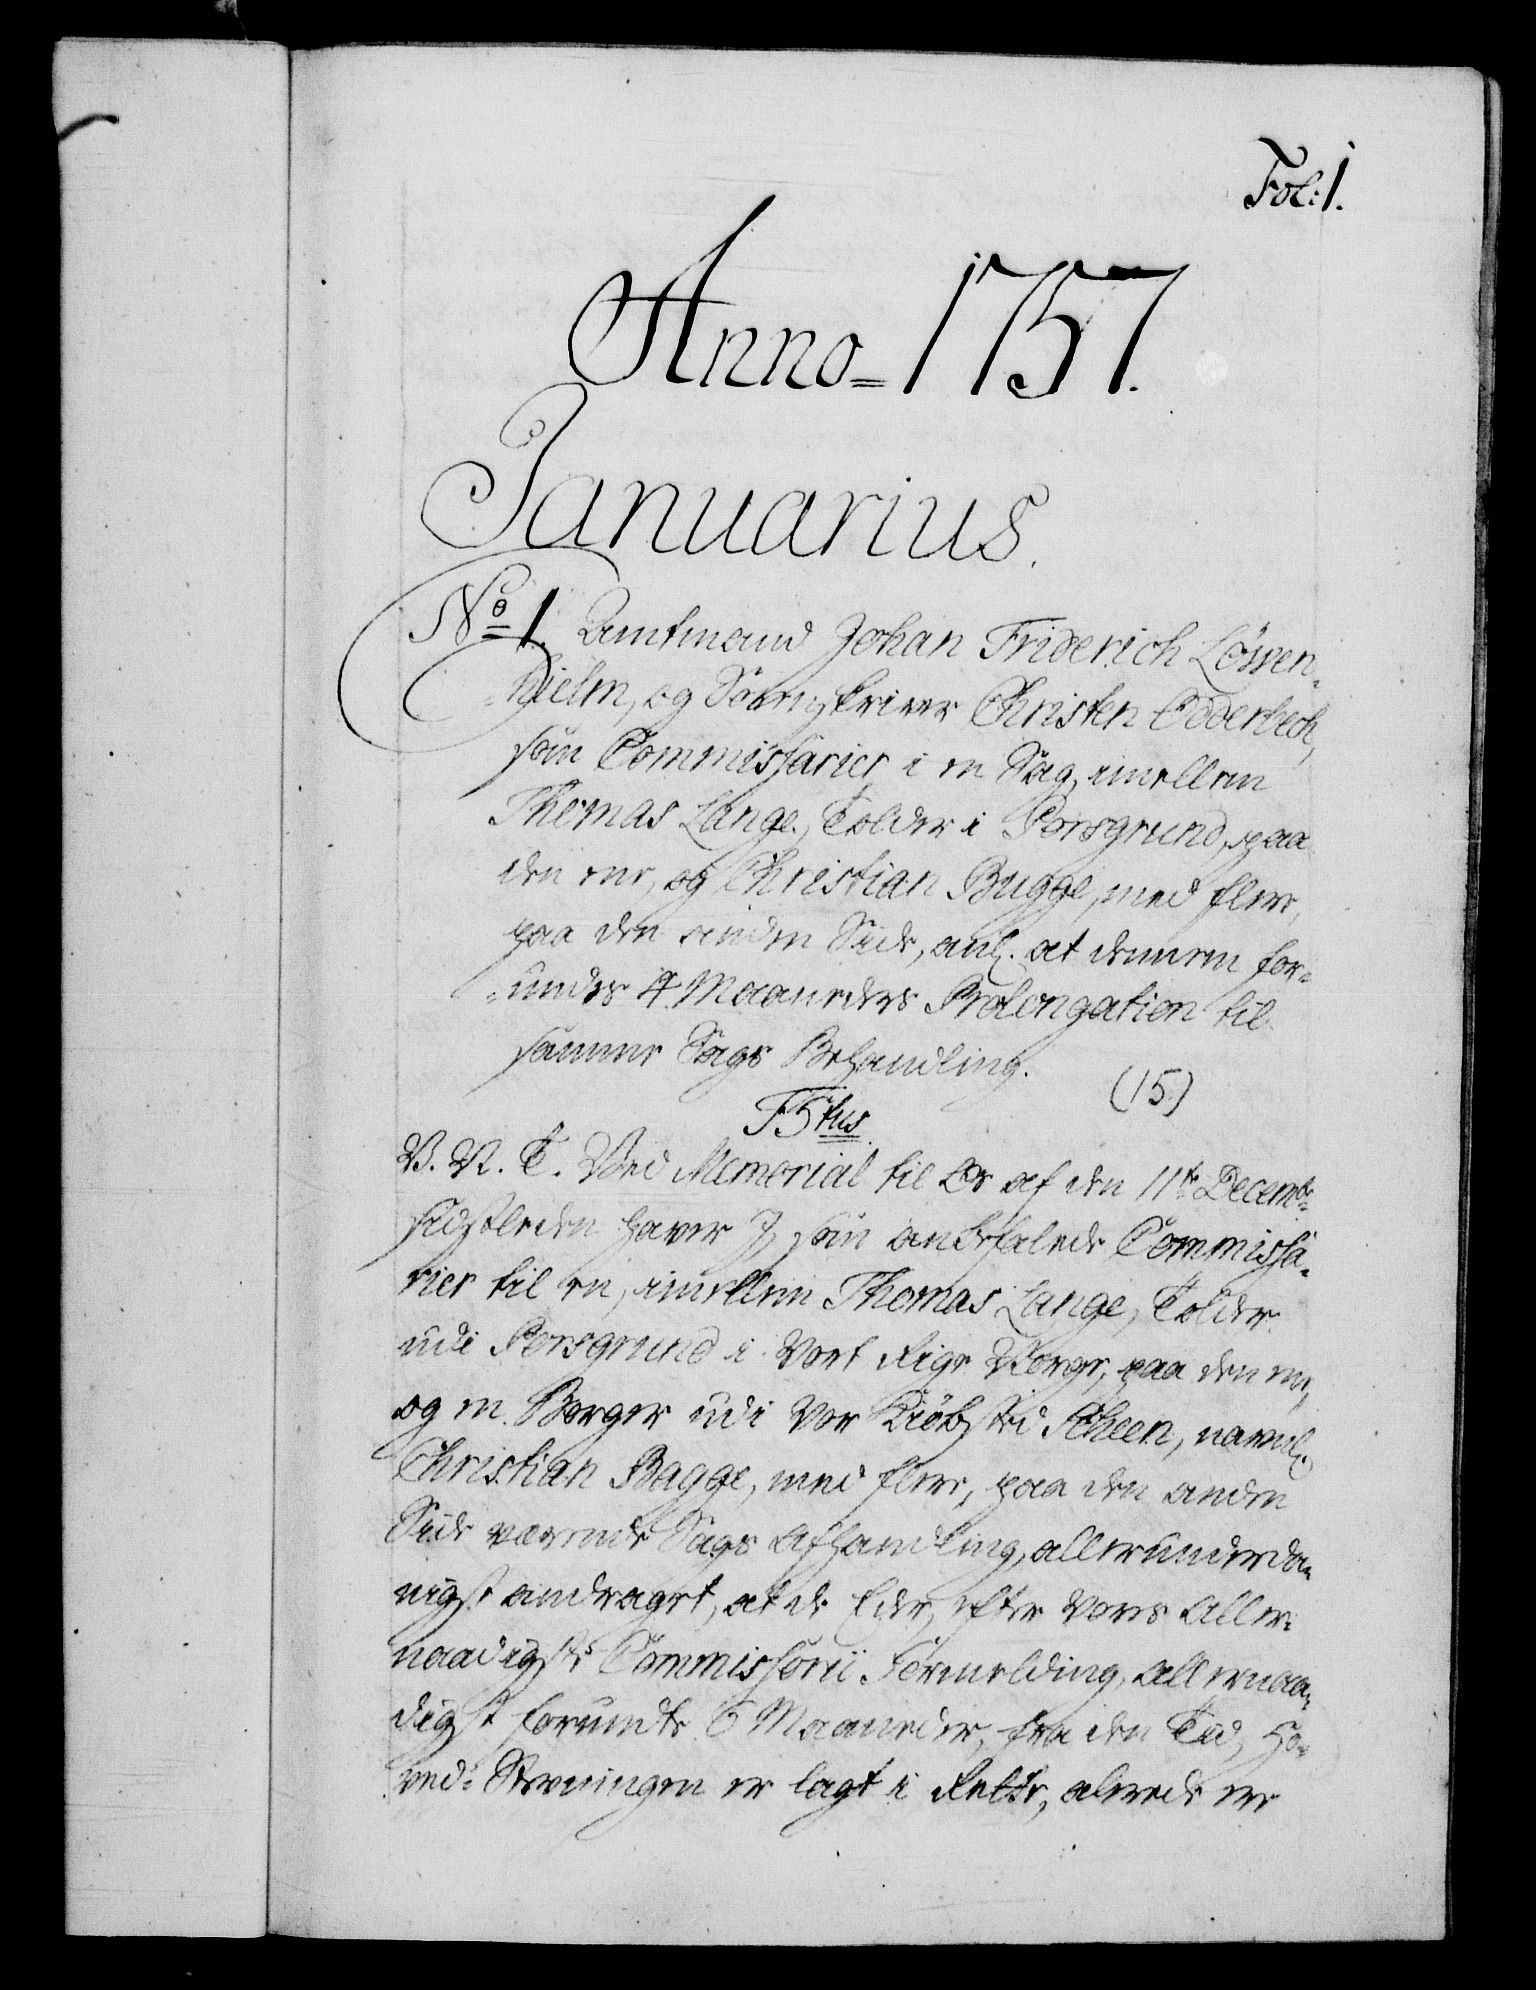 Fol: 1.
Anno = 1757.
Januarius.
No 1. Amtmand Johan Friderich Löwen-
-hielm, og Sorenskriver Christen Odderbech,
som Commissarier i en Sag, imellem
Thomas Lange, Tolder i Porsgrund, paa
den ene, og Christian Bugge, med flere,
paa den anden Side, anl. at dennem for-
-undes 4 Maaneders Prolongation til
samme Sags Behandling.
(15)
F5tus
V. N. T. Ved Memorial til Os af den 11te Decembr
sidstleden haver I, som anbefalede Commissa-
rier til en, imellem Thomas Lange, Tolder
udi Porsgrund i Vort Rige Norge, paa den ene,
og en Borger udi Vor Kiøbsted Scheen, navnl.
Christian Bagge, med flere, paa den anden
Side værende Sags Afhandling, allerunderda-
nigst andraget, at de Eder, efter Vores Aller-
naadigste Commissorii Formelding, allernaa-
digst forundte 6 Maaneder, fra den Tid, Ho-
ved-Stevningen er lagt i Rette, alerede ere